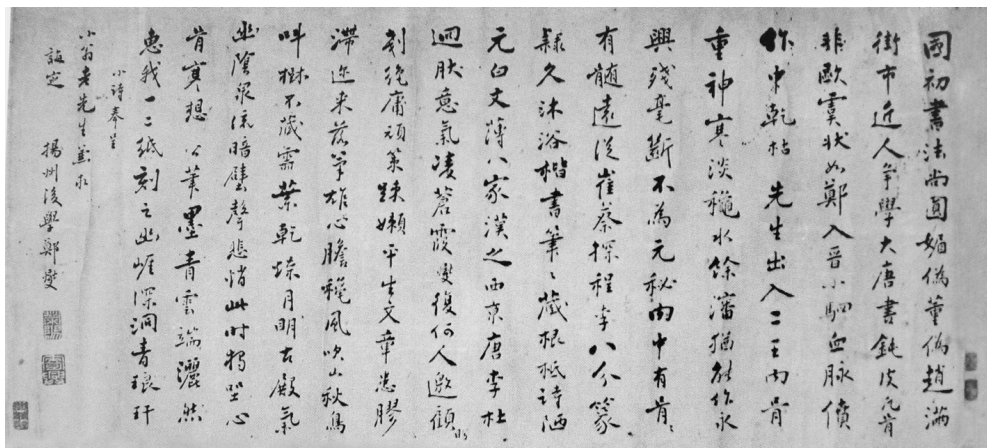 國初書法尚圓媚偽董偽趙滿
街市近人爭學大唐書鈍皮凡骨
非歐虞狀如鄭入晉小駟血脉僨
作中乾枯 先生出入二王內骨
重神寒淡穠水餘瀋猶能作永
興殘毫斷不為元秘肉中有骨〻
有髓遠從崔蔡探程李八分篆
隸久沐浴楷書筆〻藏根柢詩陋
元白文薄八家漢之西京唐李杜
迴肰意氣凌蒼霞燮復何人邀顧盼
剗絕庸頑策踈嬾平生文章患膠
滯邇來落筆雄心膽龝風吹山秋鳥
叫樹不藏葉乾燥月明古殿氣
幽陰泉流暗壁聲悲悄此時獨坐心
骨寒想公筆墨青雲端灑然
惠我一二紙刻之幽崖深洞青琅玕
小詩奉呈
小翁老先生兼求
誨定 揚州後學鄭燮